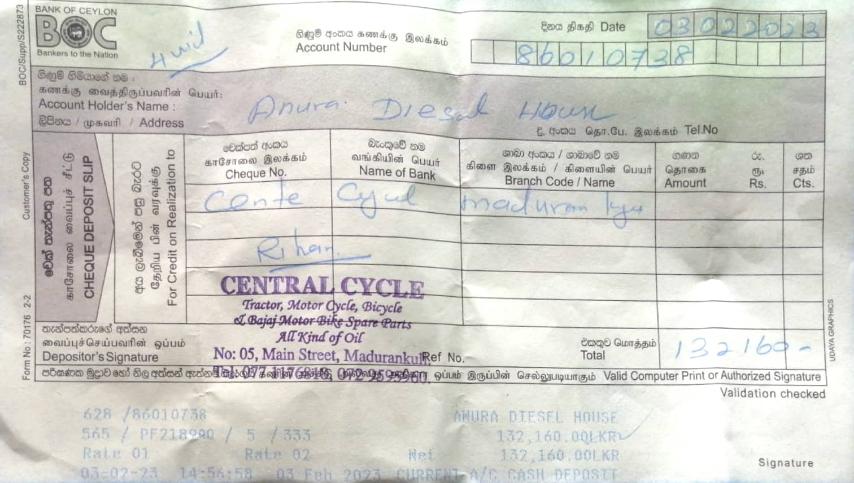 BOC/Supp/S222873
BANK OF CEYLON
BOC
Bankers to the Nation
ගිණුම් අංකය கணக்கு இலக்கம்
Account Number
දිනය திகதி Date 03022023
86010738
ගිණුම් හිමියාගේ නම :
கணக்கு வைத்திருப்பவரின் பெயர்:
Account Holder's Name : Anura Diesel House
ලිපිනය / முகவரி / Address
දු. අංකය தொ.பே. இலக்கம் Tel.No
Customer's Copy
චෙක් තැන්පතු පත
காசோலை வைப்புச் சீட்டு
CHEQUE DEPOSIT SLIP
අය ලැබීමෙන් පසු බැරට
தேறிய பின் வரவுக்கு
For Credit on Realization to
චෙක්පත් අංකය
காசோலை இலக்கம்
Cheque No.
බැංකුවේ නම
வங்கியின் பெயர்
Name of Bank
ශාඛා අංකය / ශාඛාවේ නම
கிளை இலக்கம் / கிளையின் பெயர்
Branch Code / Name
ගණන
தொகை
Amount
රු.
ரூ.
Rs.
ශත
சதம்
Cts.
Rihan
CENTRAL CYCLE
Tractor, Motor Cycle, Bicycle
& Bajaj Motor Bike Spare Parts
All Kind of Oil
No: 05, Main Street, Madurankuli.
Form No : 70176 2-2
තැන්පත්කරුගේ අත්සන
வைப்புச்செய்பவரின் ஒப்பம்
Depositor's Signature
Ref No.
එකතුව மொத்தம்
Total 132160-
UDAYA GRAPHICS
ஒப்பம் இருப்பின் செல்லுபடியாகும் Valid Computer Print or Authorized Signature
Validation checked
628 /86010738 ANURA DIESEL HOUSE
565 / PF218990 / 5 /333 132,160.00LKR
Rate 01 Rate 02 Net 132,160.00LKR
03-02-23 14:56:58 03 Feb 2023 CURRENT A/C CASH DEPOSIT
Signature